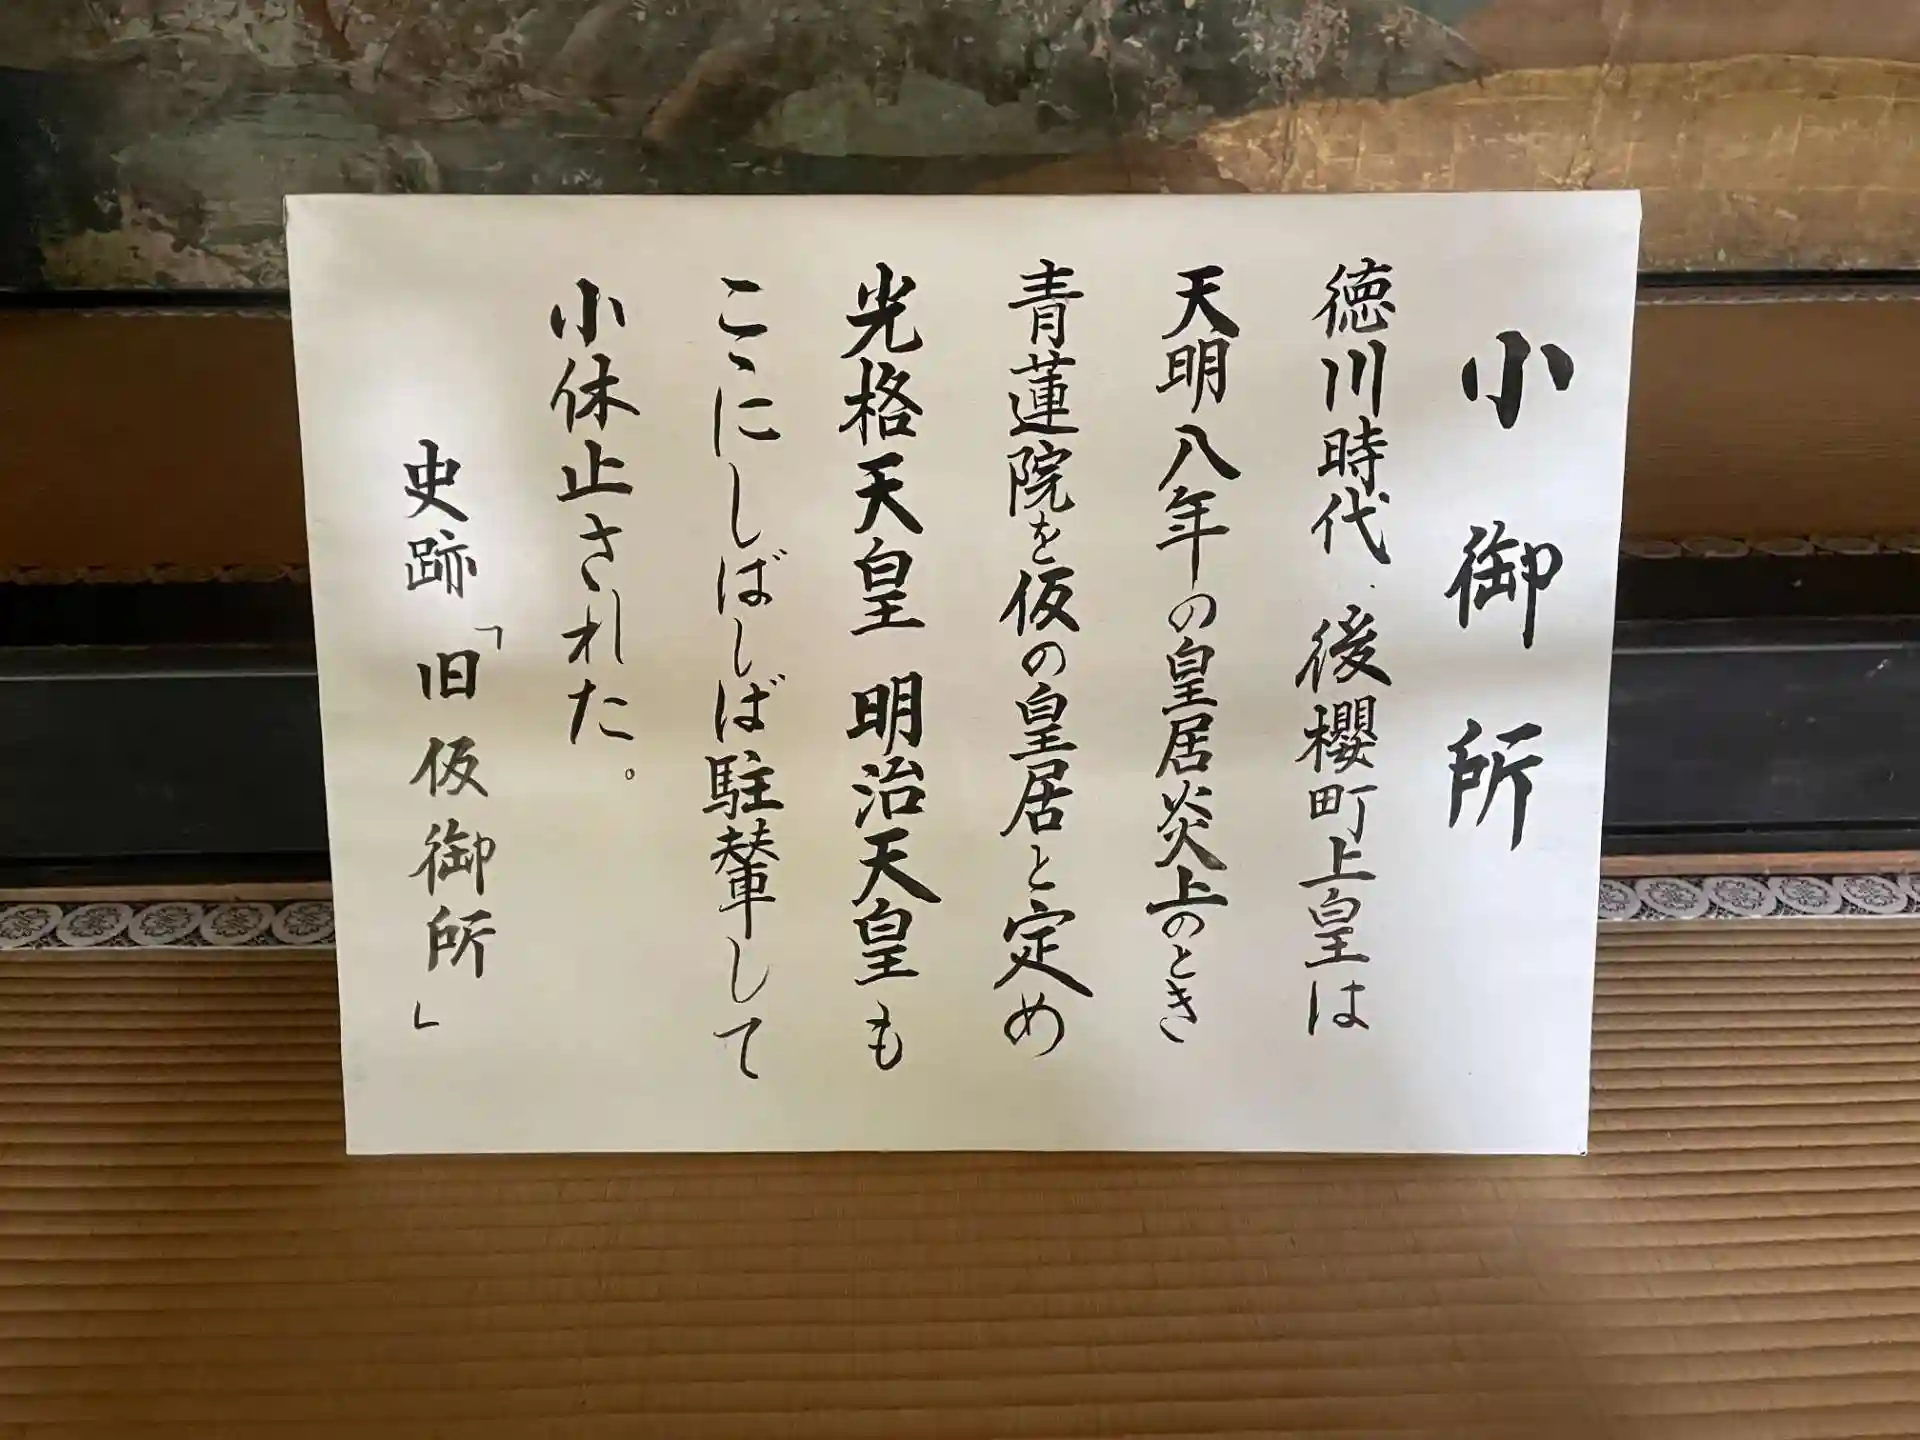 小御所
徳川時代、後櫻町上皇は
天明八年の皇居炎上のとき
青蓮院を仮の皇居と定め
光格天皇 明治天皇も
こゝにしばしば駐輦して
小休止された。
史跡「旧仮御所」